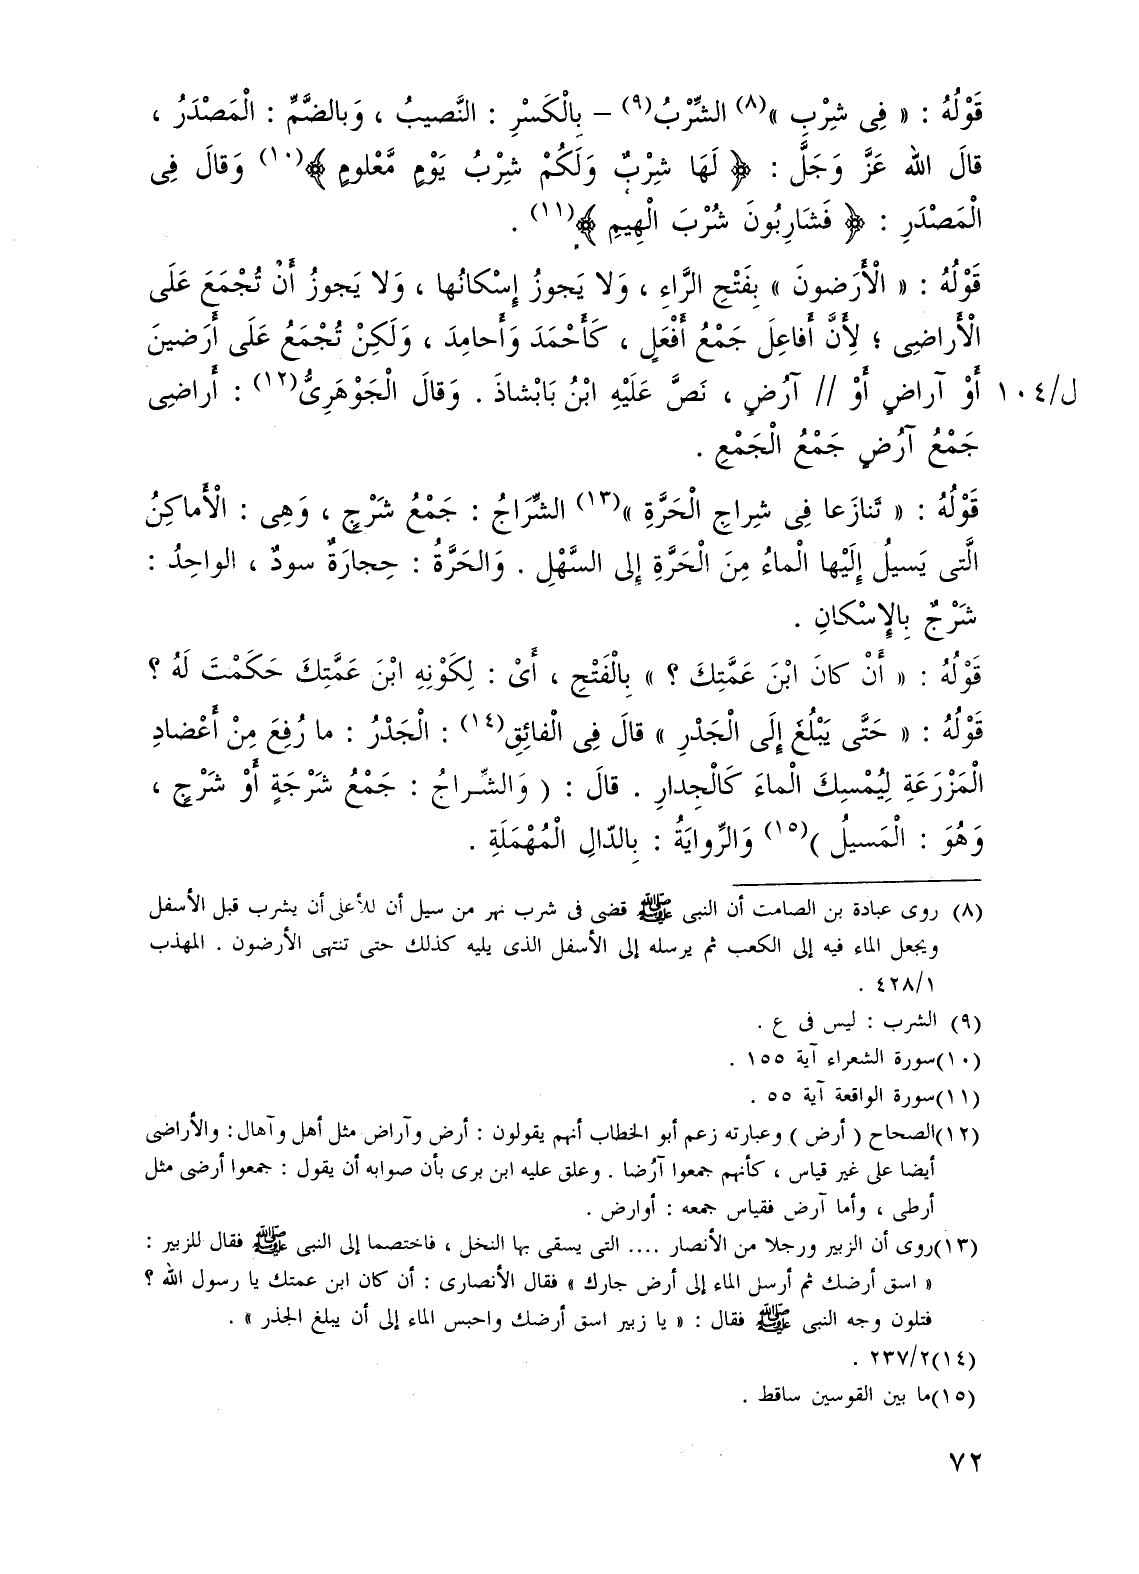 قَوْلُهُ : « فِى شِرْبِ »(٨) الشِّرْبُ(٩) – بِالْكَسْرِ : النَّصيبُ ، وَبالضَّمِّ : الْمَصْدَرُ ،
قالَ الله عَزَّ وَجَلَّ : ﴿ لَهَا شِرْبٌ وَلَكُمْ شِرْبُ يَوْمٍ مَّعْلومٍ ﴾(١٠) وَقالَ فِى
الْمَصْدَرِ : ﴿ فَشَارِبُونَ شُرْبَ الْهِيمِ ﴾(١١) .
قَوْلُهُ : « الْأَرَضونَ » بِفَتْحِ الرَّاءِ ، وَلا يَجوزُ إِسْكانُها ، وَلا يَجوزُ أَنْ تُجْمَعَ عَلَى
الْأَراضِى ؛ لِأَنَّ أَفاعِلَ جَمْعُ أَفْعَلٍ ، كَأَحْمَدَ وَأَحامِدَ ، وَلَكِنْ تُجْمَعُ عَلَى أَرَضينَ
ل/١٠٤ أَوْ آراضٍ أَوْ // آرُضٍ ، نَصَّ عَلَيْهِ ابْنُ بَابْشاذَ . وَقالَ الْجَوْهَرِىُّ(١٢) : أَراضِى
جَمْعُ آرُضٍ جَمْعُ الْجَمْعِ .
قَوْلُهُ : « تَنازَعا فِى شِراجِ الْحَرَّةِ »(١٣) الشِّرَاجُ : جَمْعُ شَرْجٍ ، وَهِى : الْأَماكِنُ
الَّتى يَسيلُ إِلَيْها الْماءُ مِنَ الْحَرَّةِ إِلى السَّهْلِ . وَالحَرَّةُ : حِجارَةٌ سودٌ ، الواحِدُ :
شَرْجٌ بِالإِسْكانِ .
قَوْلُهُ : « أَنْ كانَ ابْنَ عَمَّتِكَ ؟ » بِالْفَتْحِ ، أَىْ : لِكَوْنِهِ ابْنَ عَمَّتِكَ حَكَمْتَ لَهُ ؟
قَوْلُهُ : « حَتَّى يَبْلُغَ إِلَى الْجَدْرِ » قالَ فِى الْفائِقِ(١٤) : الْجَدْرُ : ما رُفِعَ مِنْ أَعْضادِ
الْمَزْرَعَةِ لِيُمْسِكَ الْماءَ كَالْجِدارِ . قالَ : ( وَالشِّراجُ : جَمْعُ شَرْجَةٍ أَوْ شَرْجٍ ،
وَهُوَ : الْمَسيلُ )(١٥) وَالرِّوايَةُ : بِالدّالِ الْمُهْمَلَةِ .
(٨) روى عبادة بن الصامت أن النبى ﷺ قضى فى شرب نهر من سيل أن للأعلى أن يشرب قبل الأسفل
ويجعل الماء فيه إلى الكعب ثم يرسله إلى الأسفل الذى يليه كذلك حتى تنتهى الأرضون . المهذب
٤٢٨/١ .
(٩) الشرب : ليس فى ع .
(١٠)سورة الشعراء آية ١٥٥ .
(١١)سورة الواقعة آية ٥٥ .
(١٢)الصحاح ( أرض ) وعبارته زعم أبو الخطاب أنهم يقولون : أرض وآراض مثل أهل وآهال: والأراضى
أيضا على غير قياس ، كأنهم جمعوا آرُضا . وعلق عليه ابن برى بأن صوابه أن يقول : جمعوا أرضى مثل
أرطى ، وأما آرض فقياس جمعه : أوارض .
(١٣)روى أن الزبير ورجلا من الأنصار .... التى يسقى بها النخل ، فاختصما إلى النبى ﷺ فقال للزبير :
« اسق أرضك ثم أرسل الماء إلى أرض جارك » فقال الأنصارى : أن كان ابن عمتك يا رسول الله ؟
فتلون وجه النبى ﷺ فقال : « يا زبير اسق أرضك واحبس الماء إلى أن يبلغ الجذر » .
(١٤)٢٣٧/٢ .
(١٥)ما بين القوسين ساقط .
٧٢